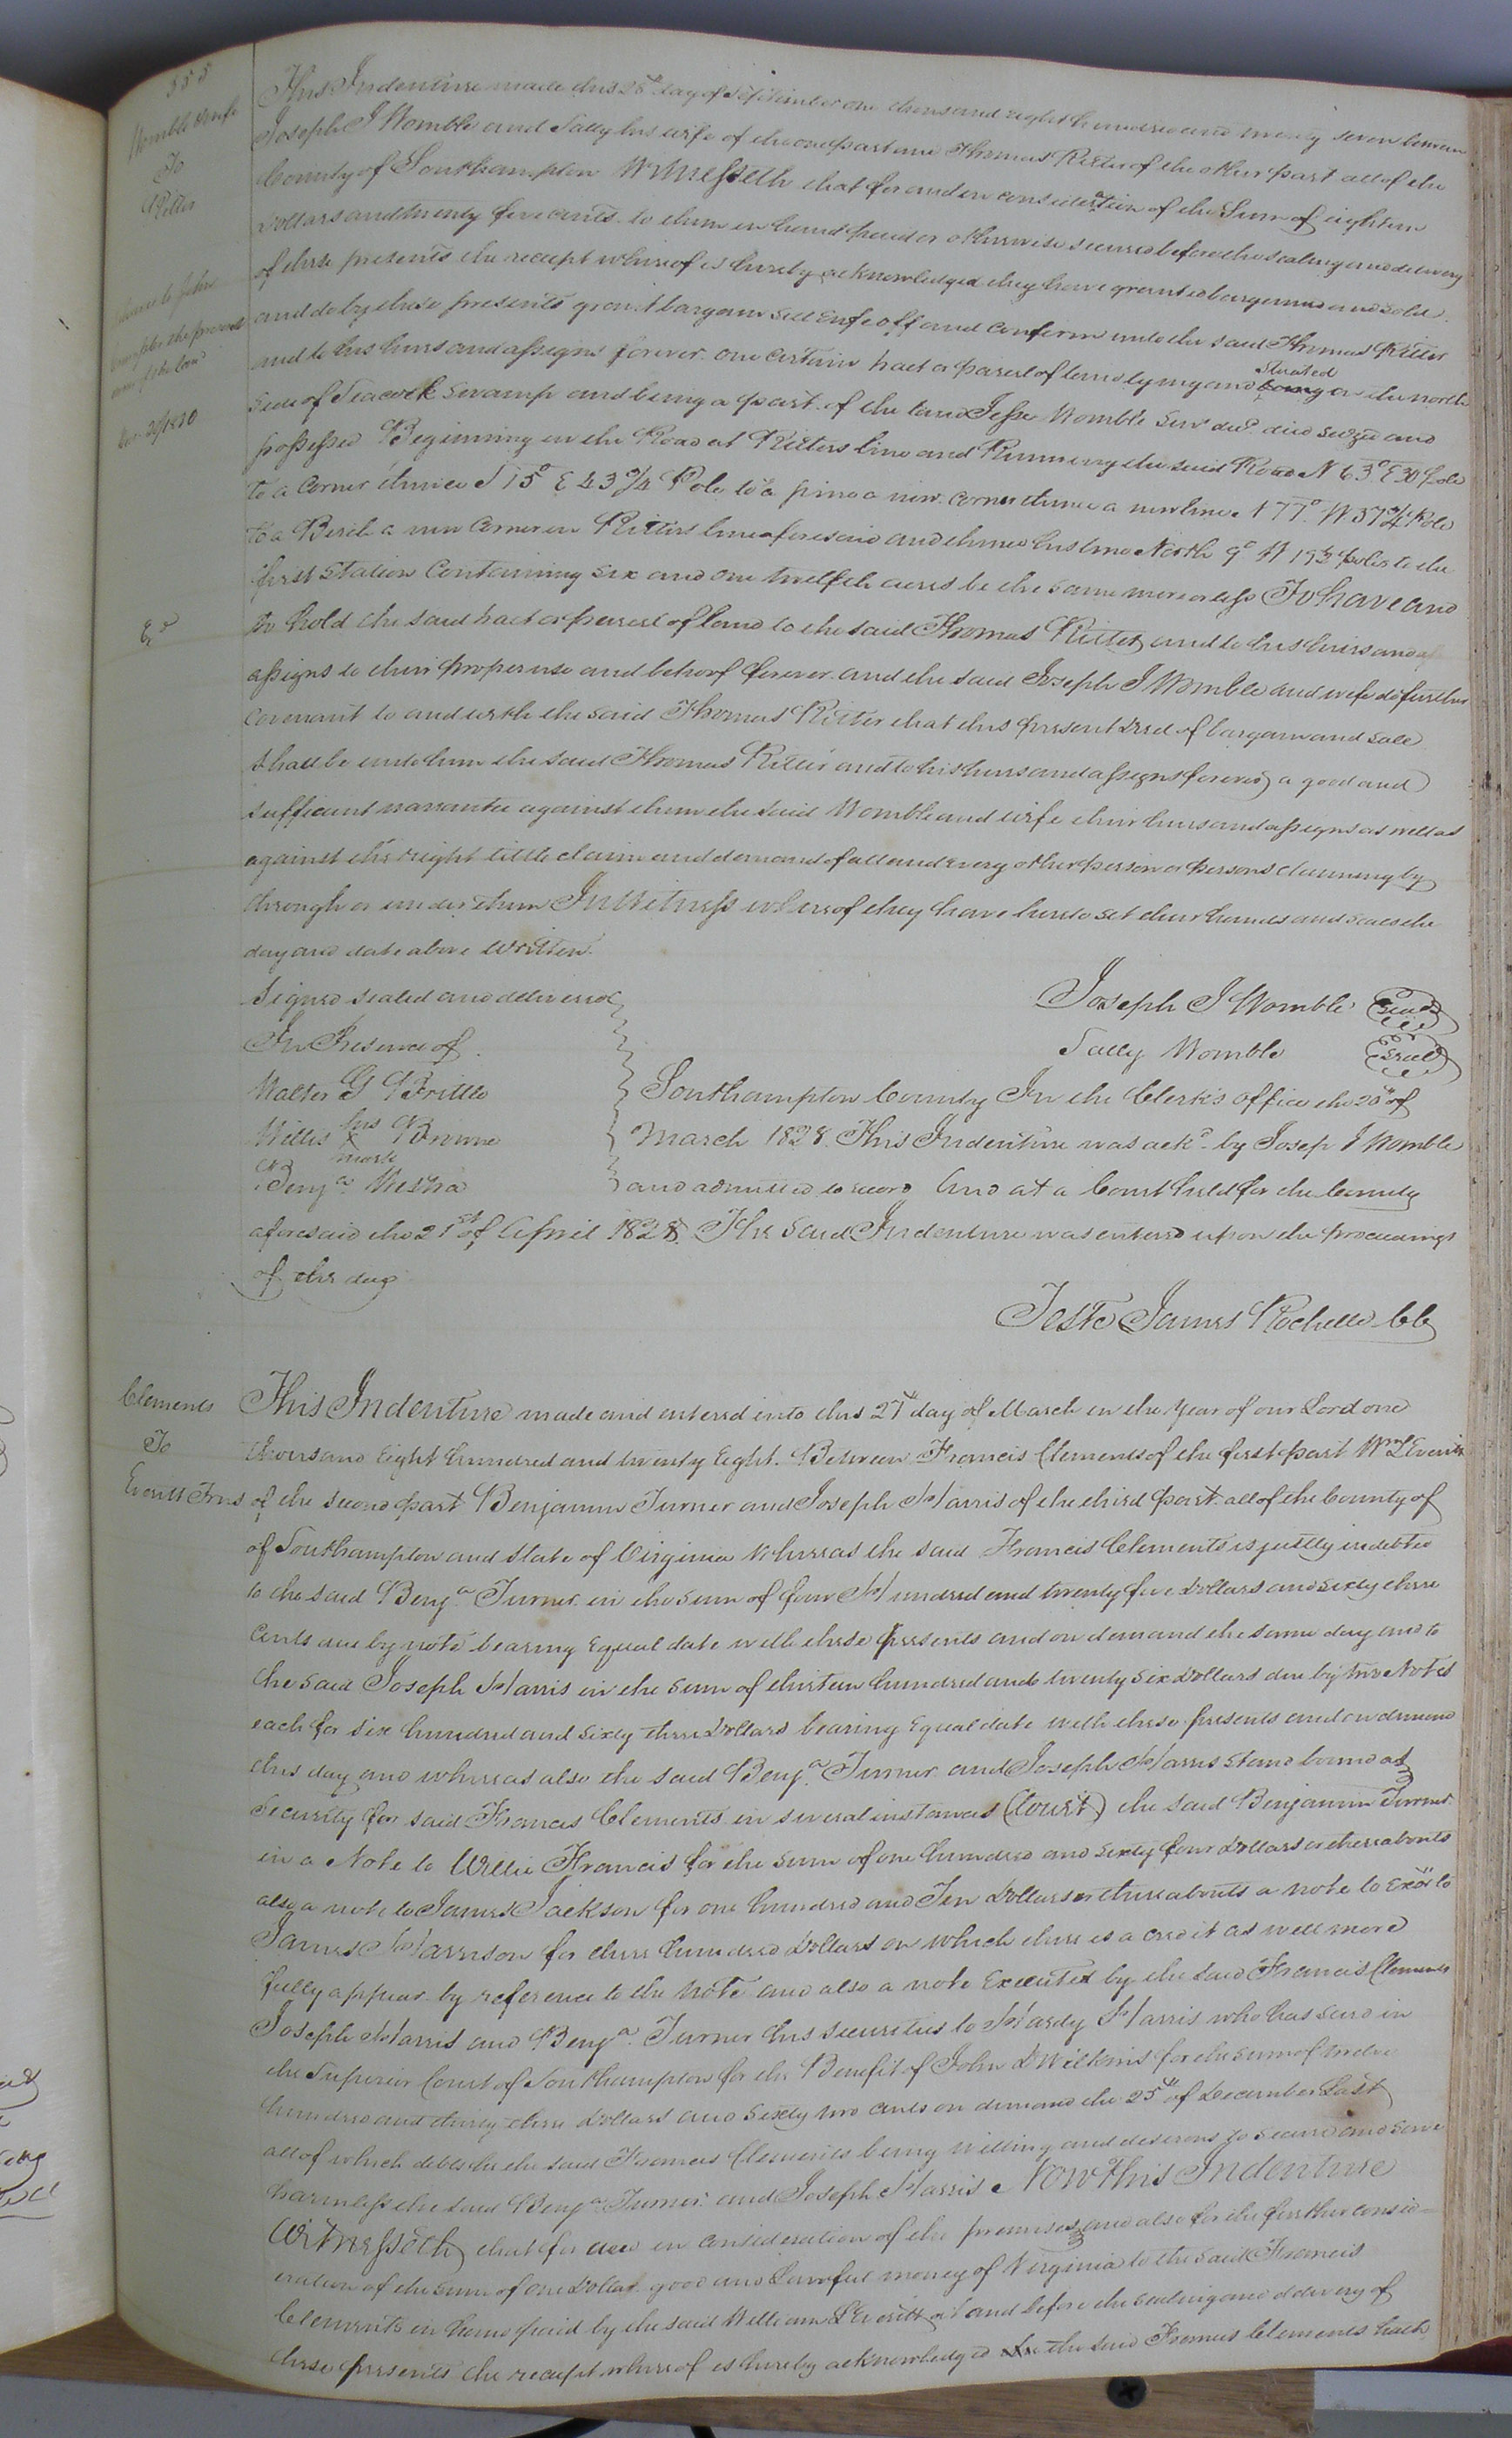 333
Womble & wife
To
Ritter
This Indenture made this 25th day of September one thousand eight hundred and twenty seven between
Joseph J Womble and Sally his wife of the one part and Thomas Ritter of the other part all of the
County of Southampton Witnesseth that for and in consideration of the Sum of eighteen
Dollars and twenty five cents to them in hand paid or otherwise secured before the sealing and delivery
of these presents the receipt whereof is hereby acknowledged they have granted bargained and sold
and do by these presents grant bargain sell enfeoff and confirm unto the said Thomas Ritter
and to his heirs and assigns forever one certain tract or parcel of land lying and situated on the north
side of Seacock Swamp and being a part of the land Jesse Womble Senr decd died seized and
possessed Beginning in the Road at Ritters line and Running the said Road N 63° E 30 pole
to a Corner thence S 15° E 43 3/4 Pole to a pine a new corner thence a new line N 77° W 37 3/4 Pole
to a Beech a new Corner in Ritters line aforesaid and thence his line North 9° W 19 1/2 poles to the
first Station Containing six and one twelfth acres be the same more or less To have and
to hold the said tract or parcel of land to the said Thomas Ritter and to his heirs and
assigns to their proper use and behoof forever and the said Joseph J Womble and wife do further
covenant to and with the said Thomas Ritter that this present deed of bargain and sale
shall be unto him the said Thomas Ritter and to his heirs and assigns forever a good and
sufficient warrantee against them the said Womble and wife their heirs and assigns as well as
against the right title claim and demand of all and every other person or persons claiming by
through or under them In Witness whereof they have hereto set their hands and seals the
day and date above written
Signed sealed and delivered
In Presence of
Joseph J Womble Seal
Sally Womble Seal
Walter G Britte
Willis his X mark Browne
Benja. Mesha
Southampton County In the Clerk's office the 20th of
March 1828. This Indenture was ackd by Josep J Womble
and admitted to record And at a Court held for the County
aforesaid the 21st of April 1828. The said Indenture was entered upon the proceedings
of the day
Teste James Rochelle CC
Clements
To
Everitt Trus
This Indenture made and entered into this 27th day of March in the Year of our Lord one
thousand Eight hundred and twenty Eight. Between Francis Clements of the first part Wm L Everitt
of the second part Benjamin Turner and Joseph Harris of the third part all of the County of
of Southampton and State of Virginia Whereas the said Francis Clements is justly indebted
to the said Benja. Turner in the sum of four Hundred and twenty five Dollars and sixty three
cents due by note bearing Equal date with these presents and on demand the same day and to
the said Joseph Harris in the sum of thirteen hundred and twenty six Dollars due by two Notes
each for six hundred and sixty three Dollars bearing Equal date with these presents and on demand
this day and whereas also the said Benja. Turner and Joseph Harris stand bound as
Security for said Francis Clements in several instances (Court) the said Benjamin Turner
in a Note to Willie Francis for the sum of one hundred and sixty four Dollars or thereabouts
also a note to James Jackson for one hundred and Ten Dollars or thereabouts a note to Exors to
James Harrison for three hundred Dollars on which there is a credit as well more
fully appear by reference to the Note and also a note Executed by the said Francis Clements
Joseph Harris and Benja. Turner his securities to Hardy Harris who has sued in
the Superior Court of Southampton for the Benefit of John D Wilkins for the sum of twelve
hundred and thirty three Dollars and sixty two cents on demand the 25th of December Last
all of which debts he the said Francis Clements being willing and desirous to secure and save
harmless the said Benja. Turner and Joseph Harris Now This Indenture
Witnesseth that for and in consideration of the premises and also for the further consid-
eration of the sum of one Dollar good and Lawful money of Virginia to the said Francis
Clements in hand paid by the said William L Everitt at and before the sealing and delivery of
these presents the receipt whereof is hereby acknowledged the said Francis Clements hath